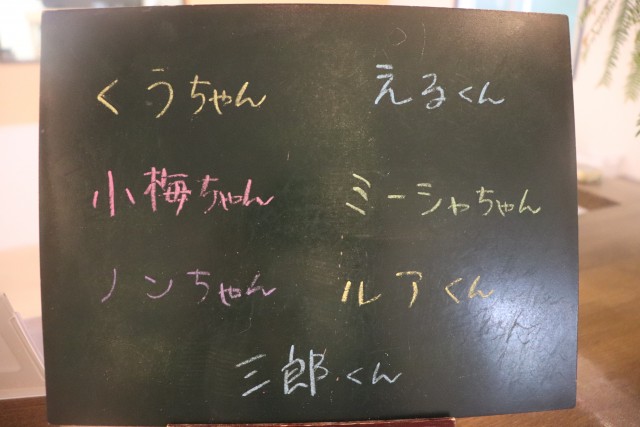 くうちゃん えるくん
小梅ちゃん ミーシャちゃん
ノンちゃん ルアくん
三郎くん